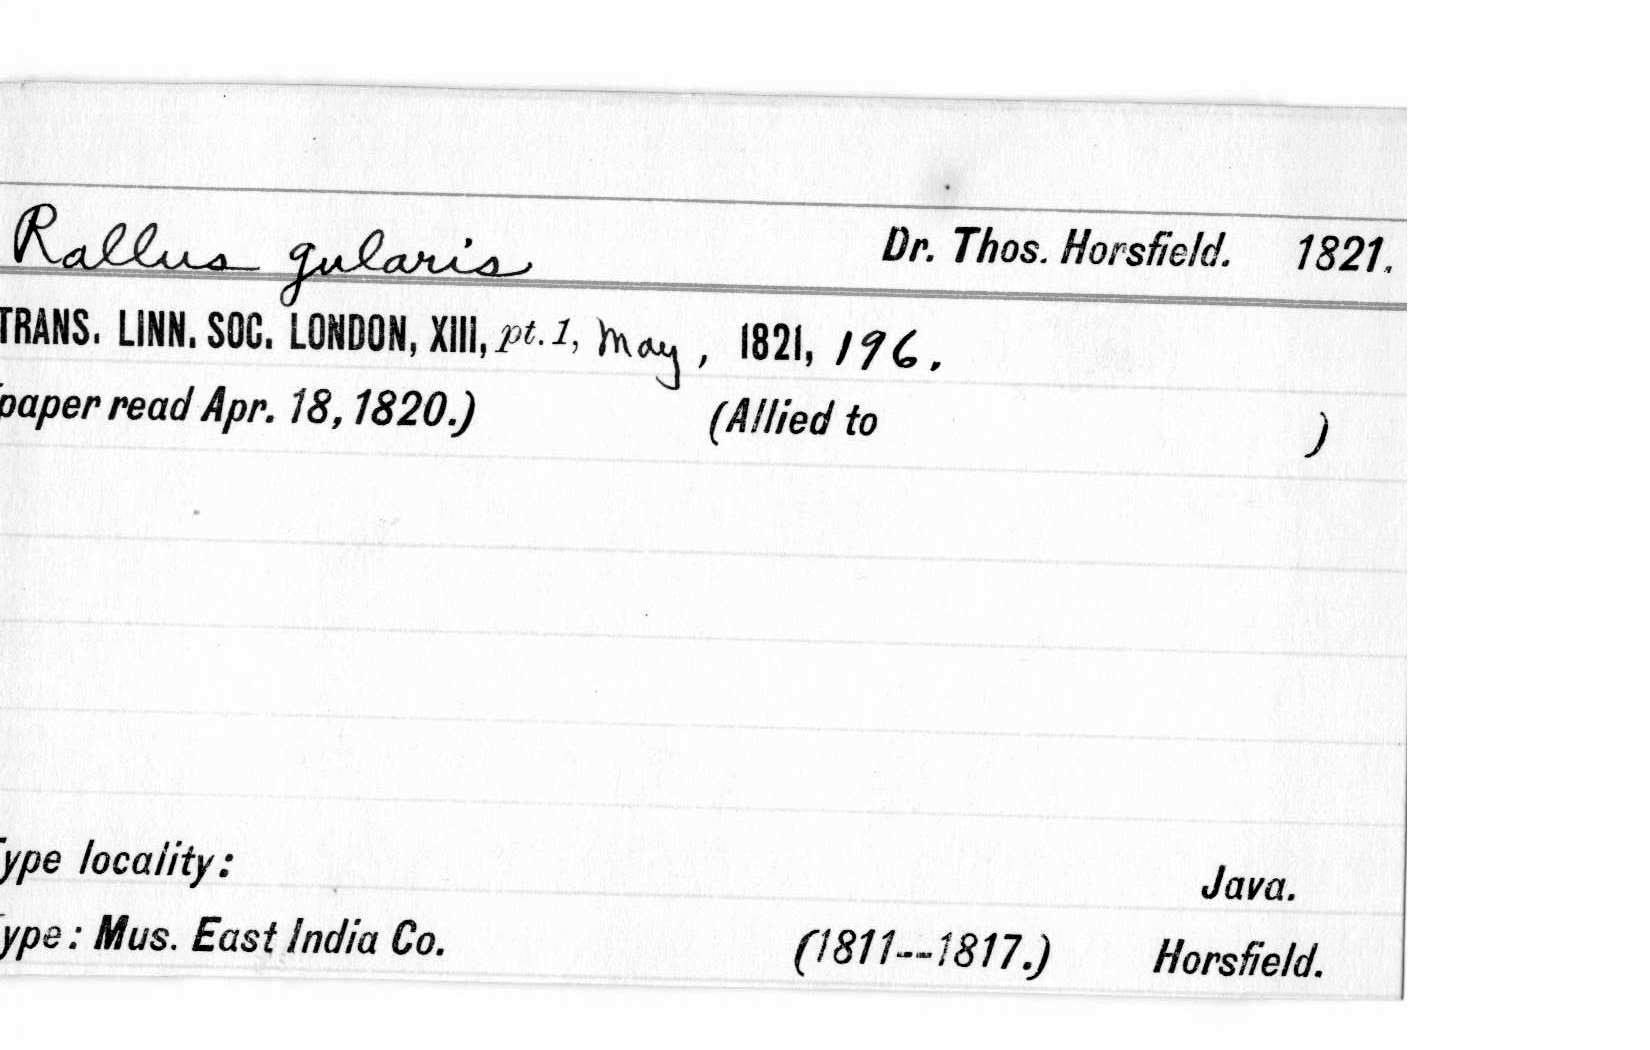 Rallus gularis Dr. Thos. Horsfield. 1821.
TRANS. LINN. SOC. LONDON, XIII, pt. 1, May, 1821, 196.
paper read Apr. 18, 1820.) (Allied to )
Type locality: Java.
Type: Mus. East India Co. (1811--1817.) Horsfield.